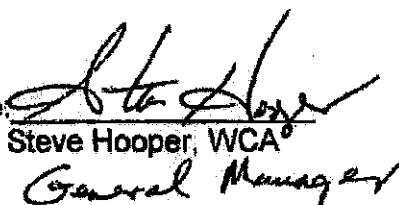 Steve Hooper
Steve Hooper, WCA
General Manager